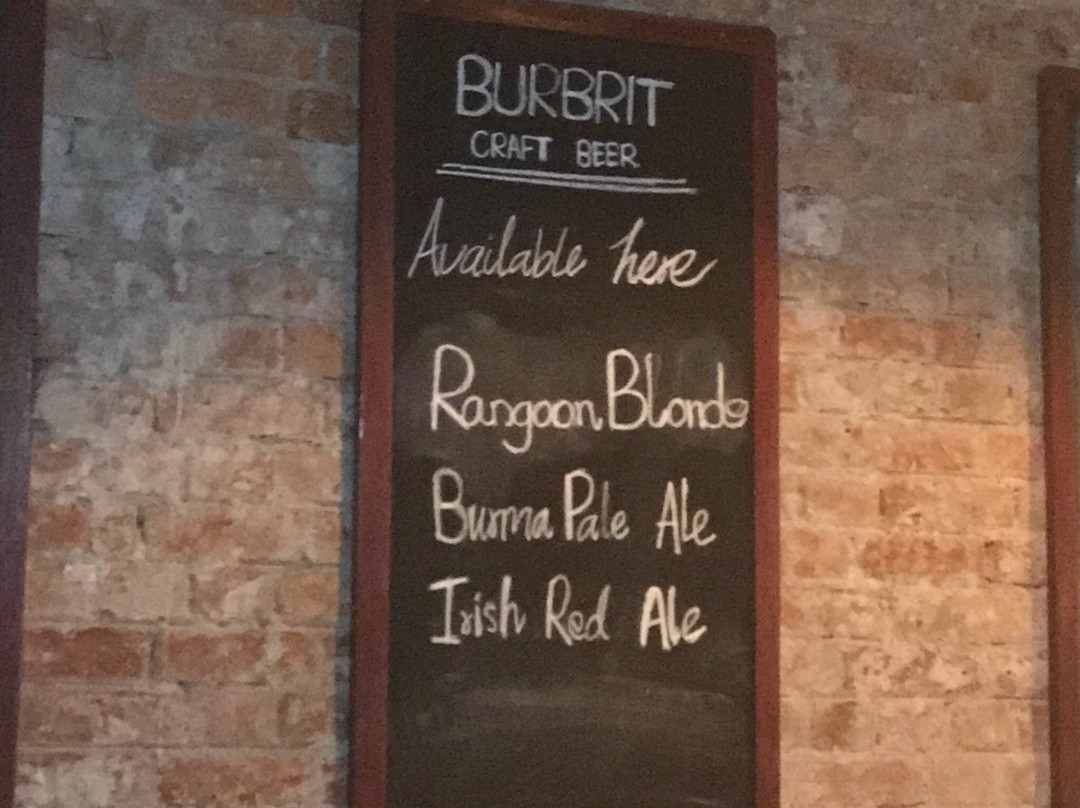 BURBRIT
CRAFT BEER
Available here
Rangoon Blonde
Burma Pale Ale
Irish Red Ale